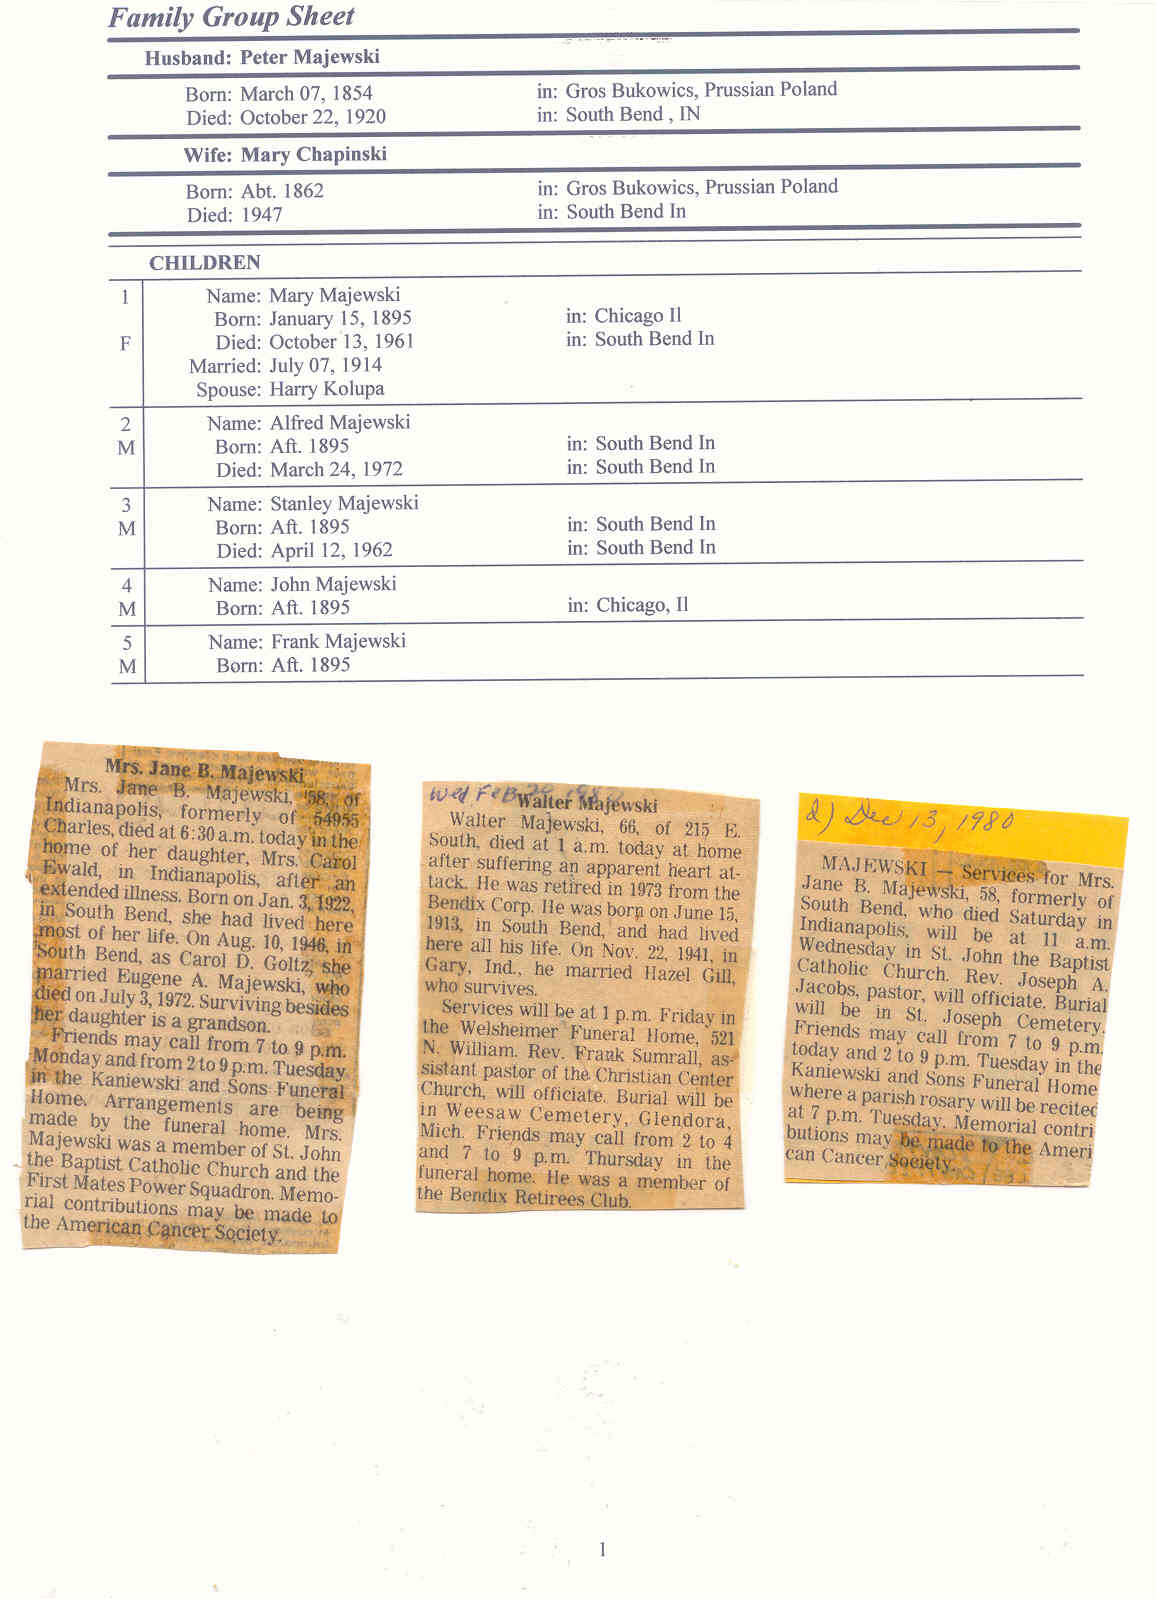 Family Group Sheet
Husband: Peter Majewski
Born: March 07, 1854 in: Gros Bukowics, Prussian Poland
Died: October 22, 1920 in: South Bend , IN
Wife: Mary Chapinski
Born: Abt. 1862 in: Gros Bukowics, Prussian Poland
Died: 1947 in: South Bend In
CHILDREN
1 Name: Mary Majewski
Born: January 15, 1895 in: Chicago Il
F Died: October 13, 1961 in: South Bend In
Married: July 07, 1914
Spouse: Harry Kolupa
2 Name: Alfred Majewski
M Born: Aft. 1895 in: South Bend In
Died: March 24, 1972 in: South Bend In
3 Name: Stanley Majewski
M Born: Aft. 1895 in: South Bend In
Died: April 12, 1962 in: South Bend In
4 Name: John Majewski
M Born: Aft. 1895 in: Chicago, Il
5 Name: Frank Majewski
M Born: Aft. 1895
Mrs. Jane B. Majewski
Mrs. Jane B. Majewski, 58, of
Indianapolis, formerly of 54955
Charles, died at 6:30 a.m. today in the
home of her daughter, Mrs. Carol
Ewald, in Indianapolis, after an
extended illness. Born on Jan. 3, 1922,
in South Bend, she had lived here
most of her life. On Aug. 10, 1946, in
South Bend, as Carol D. Goltz, she
married Eugene A. Majewski, who
died on July 3, 1972. Surviving besides
her daughter is a grandson.
Friends may call from 7 to 9 p.m.
Monday and from 2 to 9 p.m. Tuesday
in the Kaniewski and Sons Funeral
Home. Arrangements are being
made by the funeral home. Mrs.
Majewski was a member of St. John
the Baptist Catholic Church and the
First Mates Power Squadron. Memo-
rial contributions may be made to
the American Cancer Society.
Wed Feb 20 1980
Walter Majewski
Walter Majewski, 66, of 215 E.
South, died at 1 a.m. today at home
after suffering an apparent heart at-
tack. He was retired in 1973 from the
Bendix Corp. He was born on June 15,
1913, in South Bend, and had lived
here all his life. On Nov. 22, 1941, in
Gary, Ind., he married Hazel Gill,
who survives.
Services will be at 1 p.m. Friday in
the Welsheimer Funeral Home, 521
N. William. Rev. Frank Sumrall, as-
sistant pastor of the Christian Center
Church, will officiate. Burial will be
in Weesaw Cemetery, Glendora,
Mich. Friends may call from 2 to 4
and 7 to 9 p.m. Thursday in the
funeral home. He was a member of
the Bendix Retirees Club.
2) Dec 13, 1980
MAJEWSKI — Services for Mrs.
Jane B. Majewski, 58, formerly of
South Bend, who died Saturday in
Indianapolis, will be at 11 a.m.
Wednesday in St. John the Baptist
Catholic Church. Rev. Joseph A.
Jacobs, pastor, will officiate. Burial
will be in St. Joseph Cemetery.
Friends may call from 7 to 9 p.m.
today and 2 to 9 p.m. Tuesday in the
Kaniewski and Sons Funeral Home
where a parish rosary will be recited
at 7 p.m. Tuesday. Memorial contri
butions may be made to the Ameri
can Cancer Society.
1